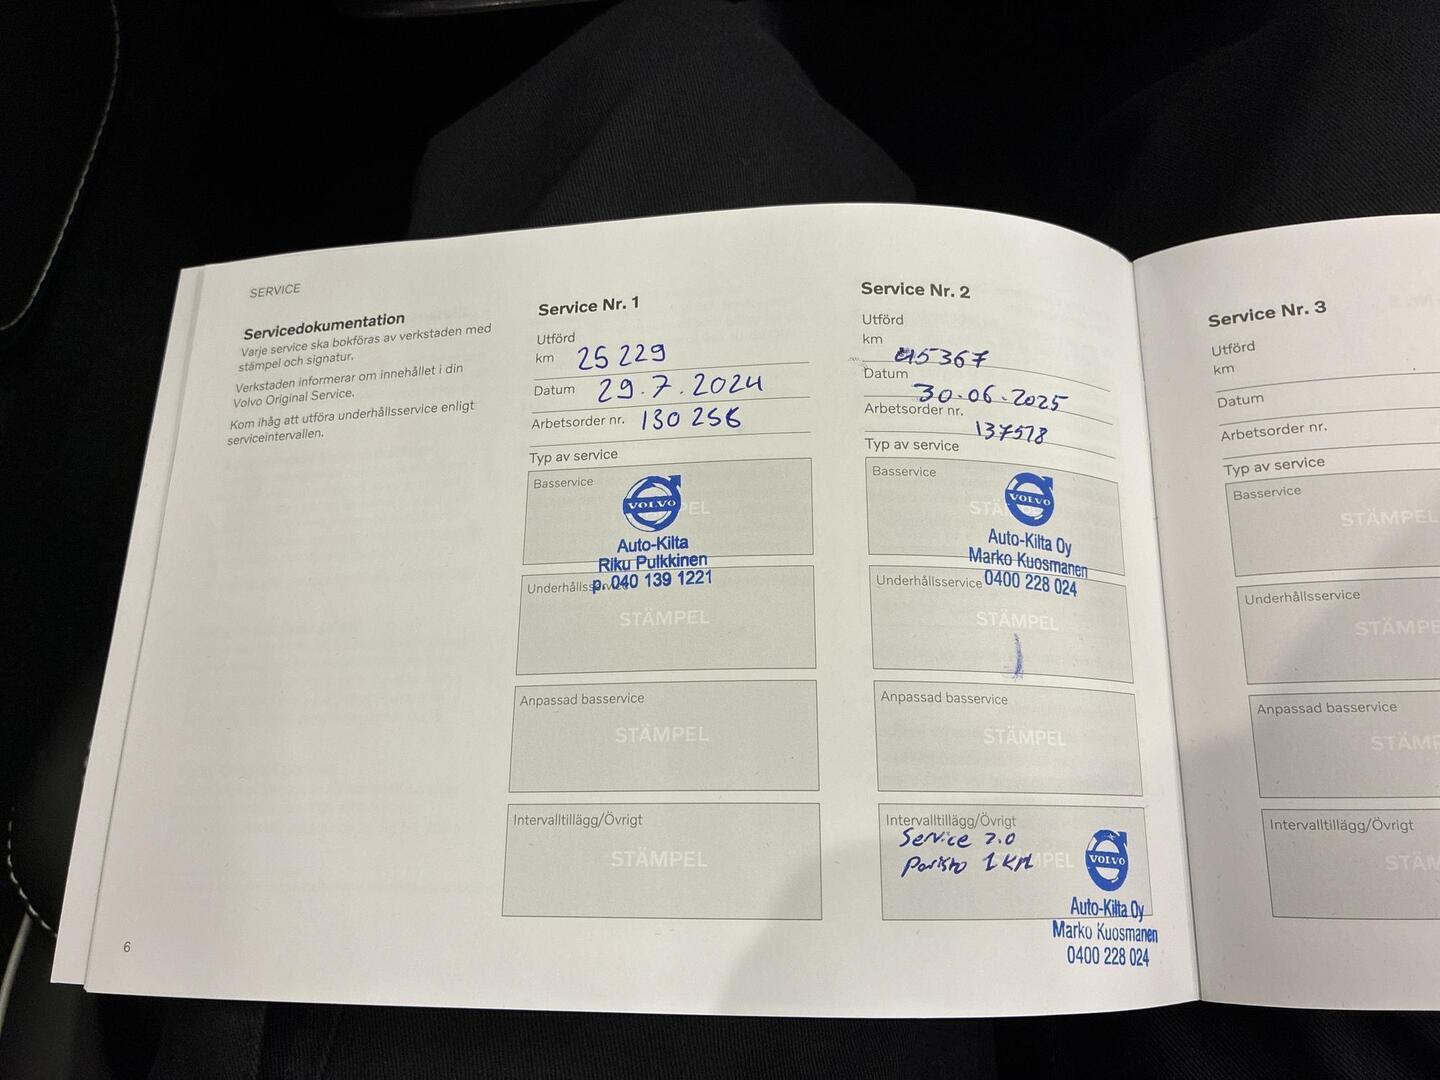 SERVICE
Servicedokumentation
Varje service ska bokföras av verkstaden med
stämpel och signatur.
Verkstaden informerar om innehållet i din
Volvo Original Service.
Kom ihåg att utföra underhållsservice enligt
serviceintervallen.
6
Service Nr. 1
Utförd
km 25 229
Datum 29.7.2024
Arbetsorder nr. 130 256
Typ av service
Basservice
VOLVO
Auto-Kilta
Riku Pulkkinen
p. 040 139 1221
Underhållsservice
STÄMPEL
Anpassad basservice
STÄMPEL
Intervalltillägg/Övrigt
STÄMPEL
Service Nr. 2
Utförd
km 45367
Datum 30.06.2025
Arbetsorder nr. 137578
Typ av service
Basservice
VOLVO
Auto-Kilta Oy
Marko Kuosmanen
0400 228 024
Underhållsservice
STÄMPEL
Anpassad basservice
STÄMPEL
Intervalltillägg/Övrigt
Service 2.0
Paristo 1 KPL
VOLVO
Auto-Kilta Oy
Marko Kuosmanen
0400 228 024
Service Nr. 3
Utförd
km
Datum
Arbetsorder nr.
Typ av service
Basservice
STÄMPEL
Underhållsservice
STÄMPE
Anpassad basservice
STÄMP
Intervalltillägg/Övrigt
STÄM